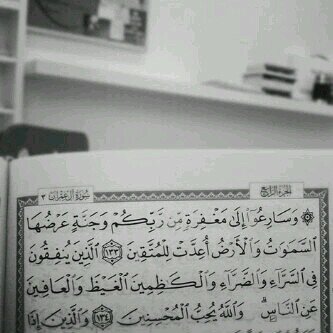 سورة آل عمران ٣ الجزء الرابع
۞ وَسَارِعُوٓا۟ إِلَىٰ مَغْفِرَةٍ مِّن رَّبِّكُمْ وَجَنَّةٍ عَرْضُهَا
ٱلسَّمَٰوَٰتُ وَٱلْأَرْضُ أُعِدَّتْ لِلْمُتَّقِينَ ١٣٣ ٱلَّذِينَ يُنفِقُونَ
فِى ٱلسَّرَّآءِ وَٱلضَّرَّآءِ وَٱلْكَٰظِمِينَ ٱلْغَيْظَ وَٱلْعَافِينَ
عَنِ ٱلنَّاسِ ۗ وَٱللَّهُ يُحِبُّ ٱلْمُحْسِنِينَ ١٣٤ وَٱلَّذِينَ إِذَا